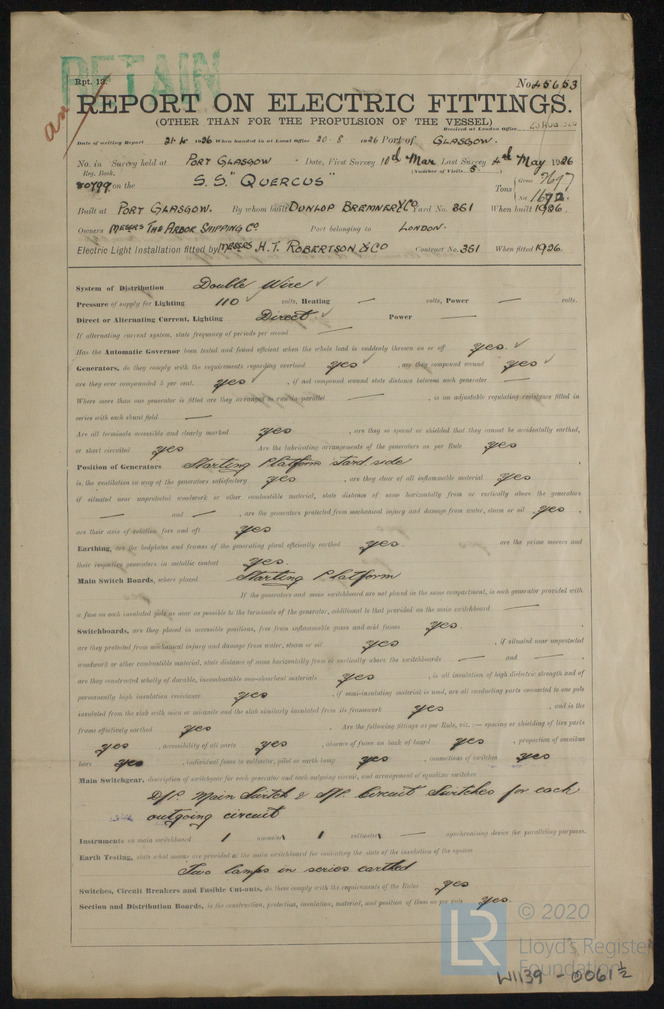 RETAIN
Rpt. 13.
No. 45653
REPORT ON ELECTRIC FITTINGS.
(OTHER THAN FOR THE PROPULSION OF THE VESSEL)
Received at London Office
Date of writing Report 1926 When handed in at Local Office 20-8 1926 Port of GLASGOW.
No. in Survey held at PORT GLASGOW Date, First Survey 10th Mar Last Survey 4th May 1926
Reg. Book. (Number of Visits 5)
on the S.S. "QUERCUS" Tons Gross
Net 1672
Built at PORT GLASGOW. By whom built DUNLOP BREMNER & CO Yard No. 361 When built 1926.
Owners MESSRS THE ARBOR SHIPPING CO Port belonging to LONDON.
Electric Light Installation fitted by MESSRS H.T. ROBERTSON & CO Contract No. 361 When fitted 1926.
System of Distribution Double Wire
Pressure of supply for Lighting 110 volts, Heating — volts, Power — volts.
Direct or Alternating Current, Lighting Direct Power —
If alternating current system, state frequency of periods per second —
Has the Automatic Governor been tested and found efficient when the whole load is suddenly thrown on or off yes.
Generators, do they comply with the requirements regarding overload yes, are they compound wound yes
are they over compounded 5 per cent. yes, if not compound wound state distance between each generator —
Where more than one generator is fitted are they arranged to run in parallel —, is an adjustable regulating resistance fitted in
series with each shunt field —
Are all terminals accessible and clearly marked yes, are they so spaced or shielded that they cannot be accidentally earthed,
or short circuited yes Are the lubricating arrangements of the generators as per Rule yes
Position of Generators Starting Platform starb. side
is the ventilation in way of the generators satisfactory yes, are they clear of all inflammable material yes
if situated near unprotected woodwork or other combustible material, state distance of same horizontally from or vertically above the generators
— and —, are the generators protected from mechanical injury and damage from water, steam or oil yes,
are their axes of rotation fore and aft yes
Earthing, are the bedplates and frames of the generating plant efficiently earthed yes are the prime movers and
their respective generators in metallic contact yes.
Main Switch Boards, where placed Starting Platform
If the generators and main switchboard are not placed in the same compartment, is each generator provided with
a fuse on each insulated pole as near as possible to the terminals of the generator, additional to that provided on the main switchboard —
Switchboards, are they placed in accessible positions, free from inflammable gases and acid fumes yes,
are they protected from mechanical injury and damage from water, steam or oil yes, if situated near unprotected
woodwork or other combustible material, state distance of same horizontally from or vertically above the switchboards — and —,
are they constructed wholly of durable, incombustible non-absorbent materials yes, is all insulation of high dielectric strength and of
permanently high insulation resistance yes, if semi-insulating material is used, are all conducting parts connected to one pole
insulated from the slab with mica or micanite and the slab similarly insulated from its framework yes, and is the
frame efficiently earthed yes. Are the following fittings as per Rule, viz.:— spacing or shielding of live parts
yes, accessibility of all parts yes, absence of fuses on back of board yes, proportion of omnibus
bars yes, individual fuses to voltmeter, pilot or earth lamp yes, connections of switches yes
Main Switchgear, description of switchgear for each generator and each outgoing circuit, and arrangement of equalizer switches
D/P. Main Switch & D/P. Circuit Switches for each
outgoing circuit
Instruments on main switchboard 1 ammeter 1 voltmeter — synchronising device for paralleling purposes.
Earth Testing, state what means are provided on the main switchboard for indicating the state of the insulation of the system
Two lamps in series earthed
Switches, Circuit Breakers and Fusible Cut-outs, do these comply with the requirements of the Rules yes
Section and Distribution Boards, is the construction, protection, insulation, material, and position of these as per rule yes.
LR
© 2020
Lloyd's Register
Foundation
W1139 - 0061 ½